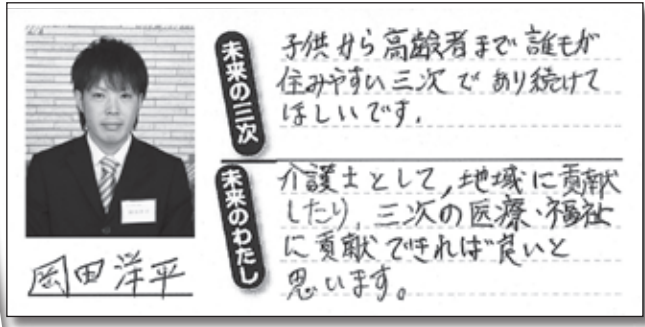 未来の三次
子供から高齢者まで誰もが
住みやすい三次であり続けて
ほしいです.
未来のわたし
介護士として,地域に貢献
したり,三次の医療・福祉
に貢献できれば良いと
思います。
岡田洋平